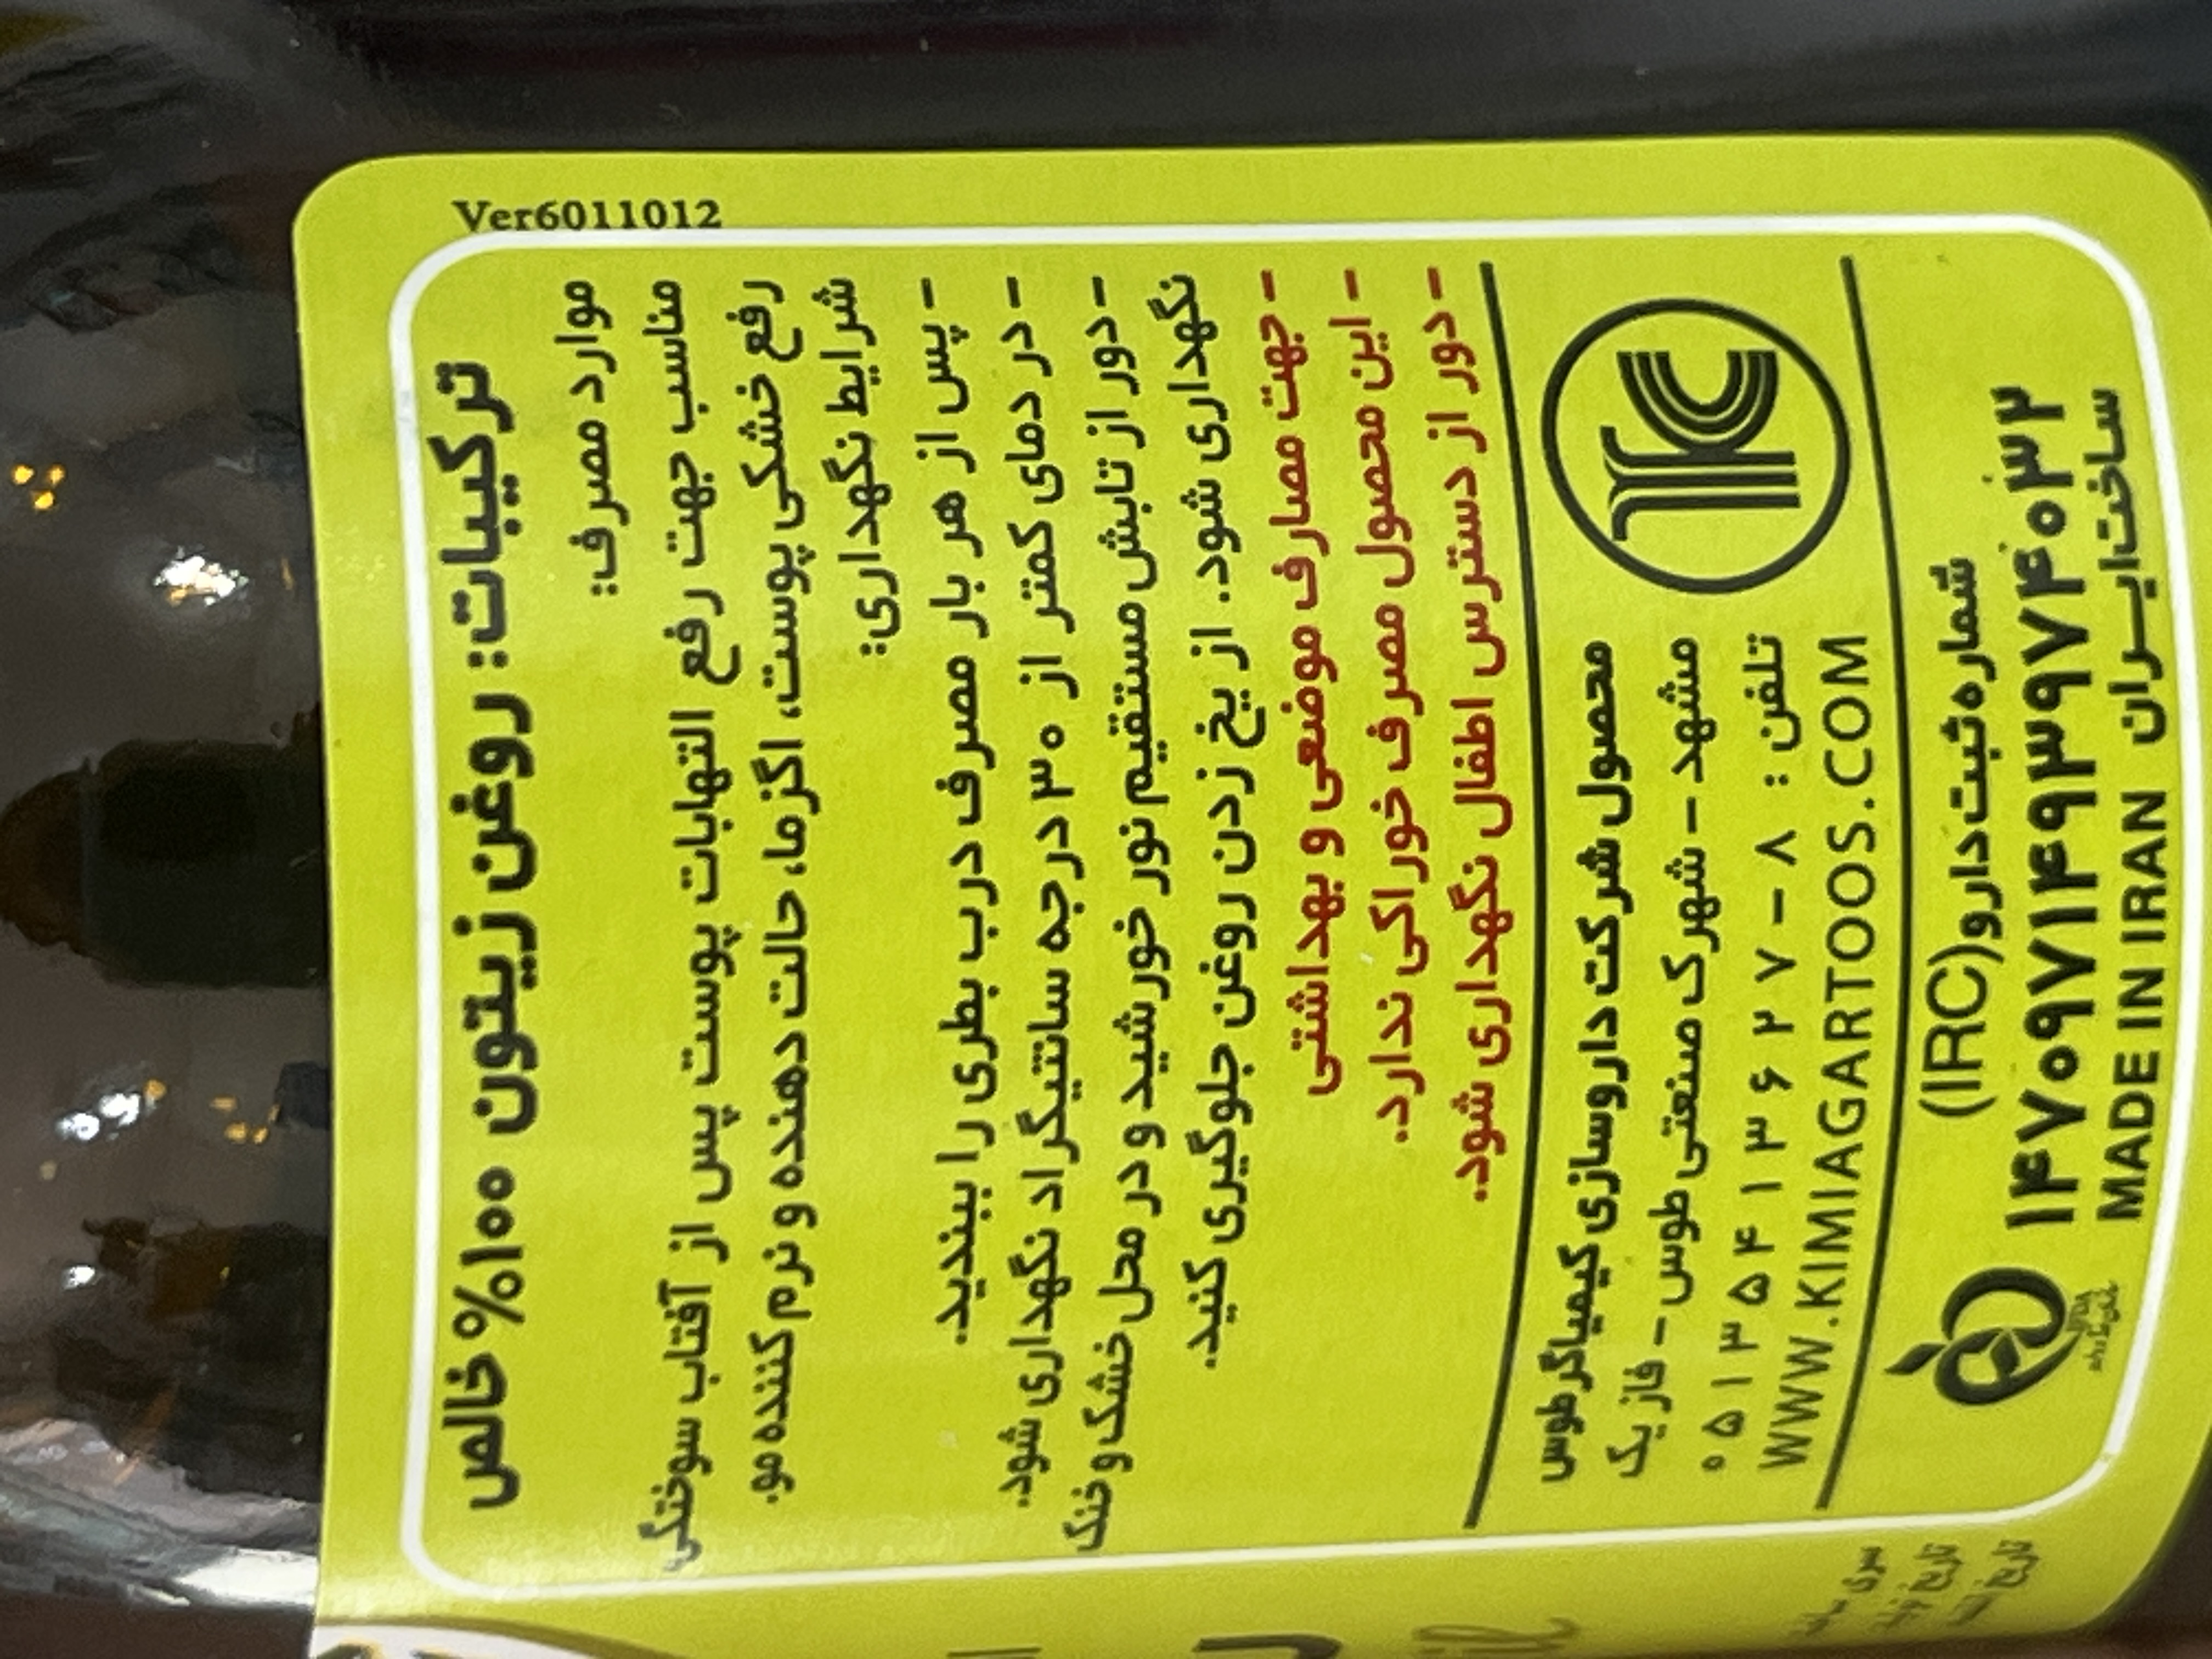 Ver6011012
ترکیبات: روغن زیتون ۱۰۰% خالص
موارد مصرف:
مناسب جهت رفع التهابات پوست پس از آفتاب سوختگی
رفع خشکی پوست، اگزما، حالت دهنده و نرم کننده مو.
شرایط نگهداری:
- پس از هر بار مصرف درب بطری را ببندید.
- در دمای کمتر از ۳۰ درجه سانتیگراد نگهداری شود.
- دور از تابش مستقیم نور خورشید و در محل خشک و خنک
نگهداری شود. از یخ زدن روغن جلوگیری کنید.
- جهت مصارف موضعی و بهداشتی
- این محصول مصرف خوراکی ندارد.
- دور از دسترس اطفال نگهداری شود.
محصول شرکت داروسازی کیمیاگر طوس
مشهد - شهرک صنعتی طوس - فاز یک
تلفن: ۸ - ۰۵۱۳۵۴۱۳۶۲۷
WWW.KIMIAGARTOOS.COM
شماره ثبت دارو (IRC)
۱۴۷۰۹۷۱۴۹۳۹۷۴۰۳۲
ساخت ایران MADE IN IRAN